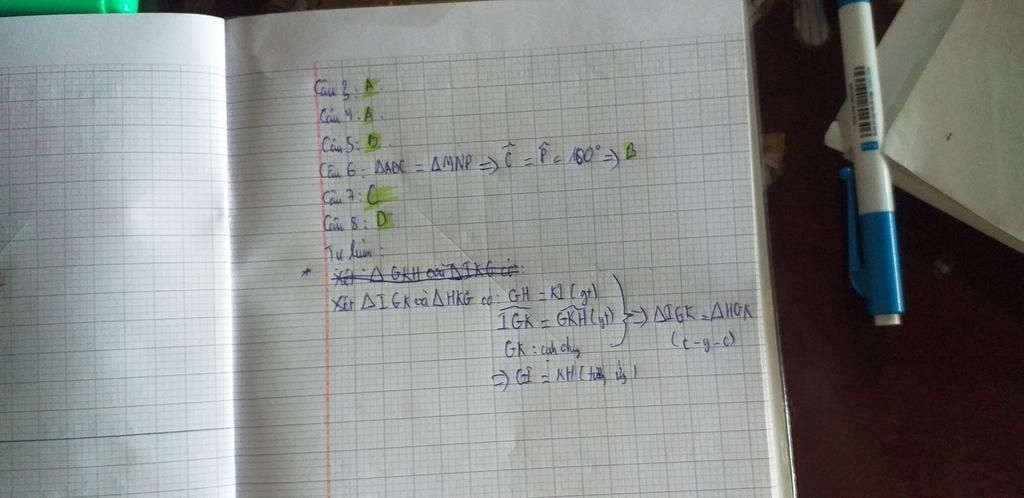 Câu 3: A.
Câu 4: A.
Câu 5: D.
Câu 6: ΔABC = ΔMNP => Ĉ = P̂ = 100° => B
Câu 7: C
Câu 8: D
Tự luận:
* Xét Δ GKH và Δ IKG có:
Xét ΔIGK và ΔHKG có: GH = KI (gt)
IGK = GKH (gt) => ΔIGK = ΔHGK
GK: cạnh chung (c-g-c)
=> GI = KH (tương ứng)